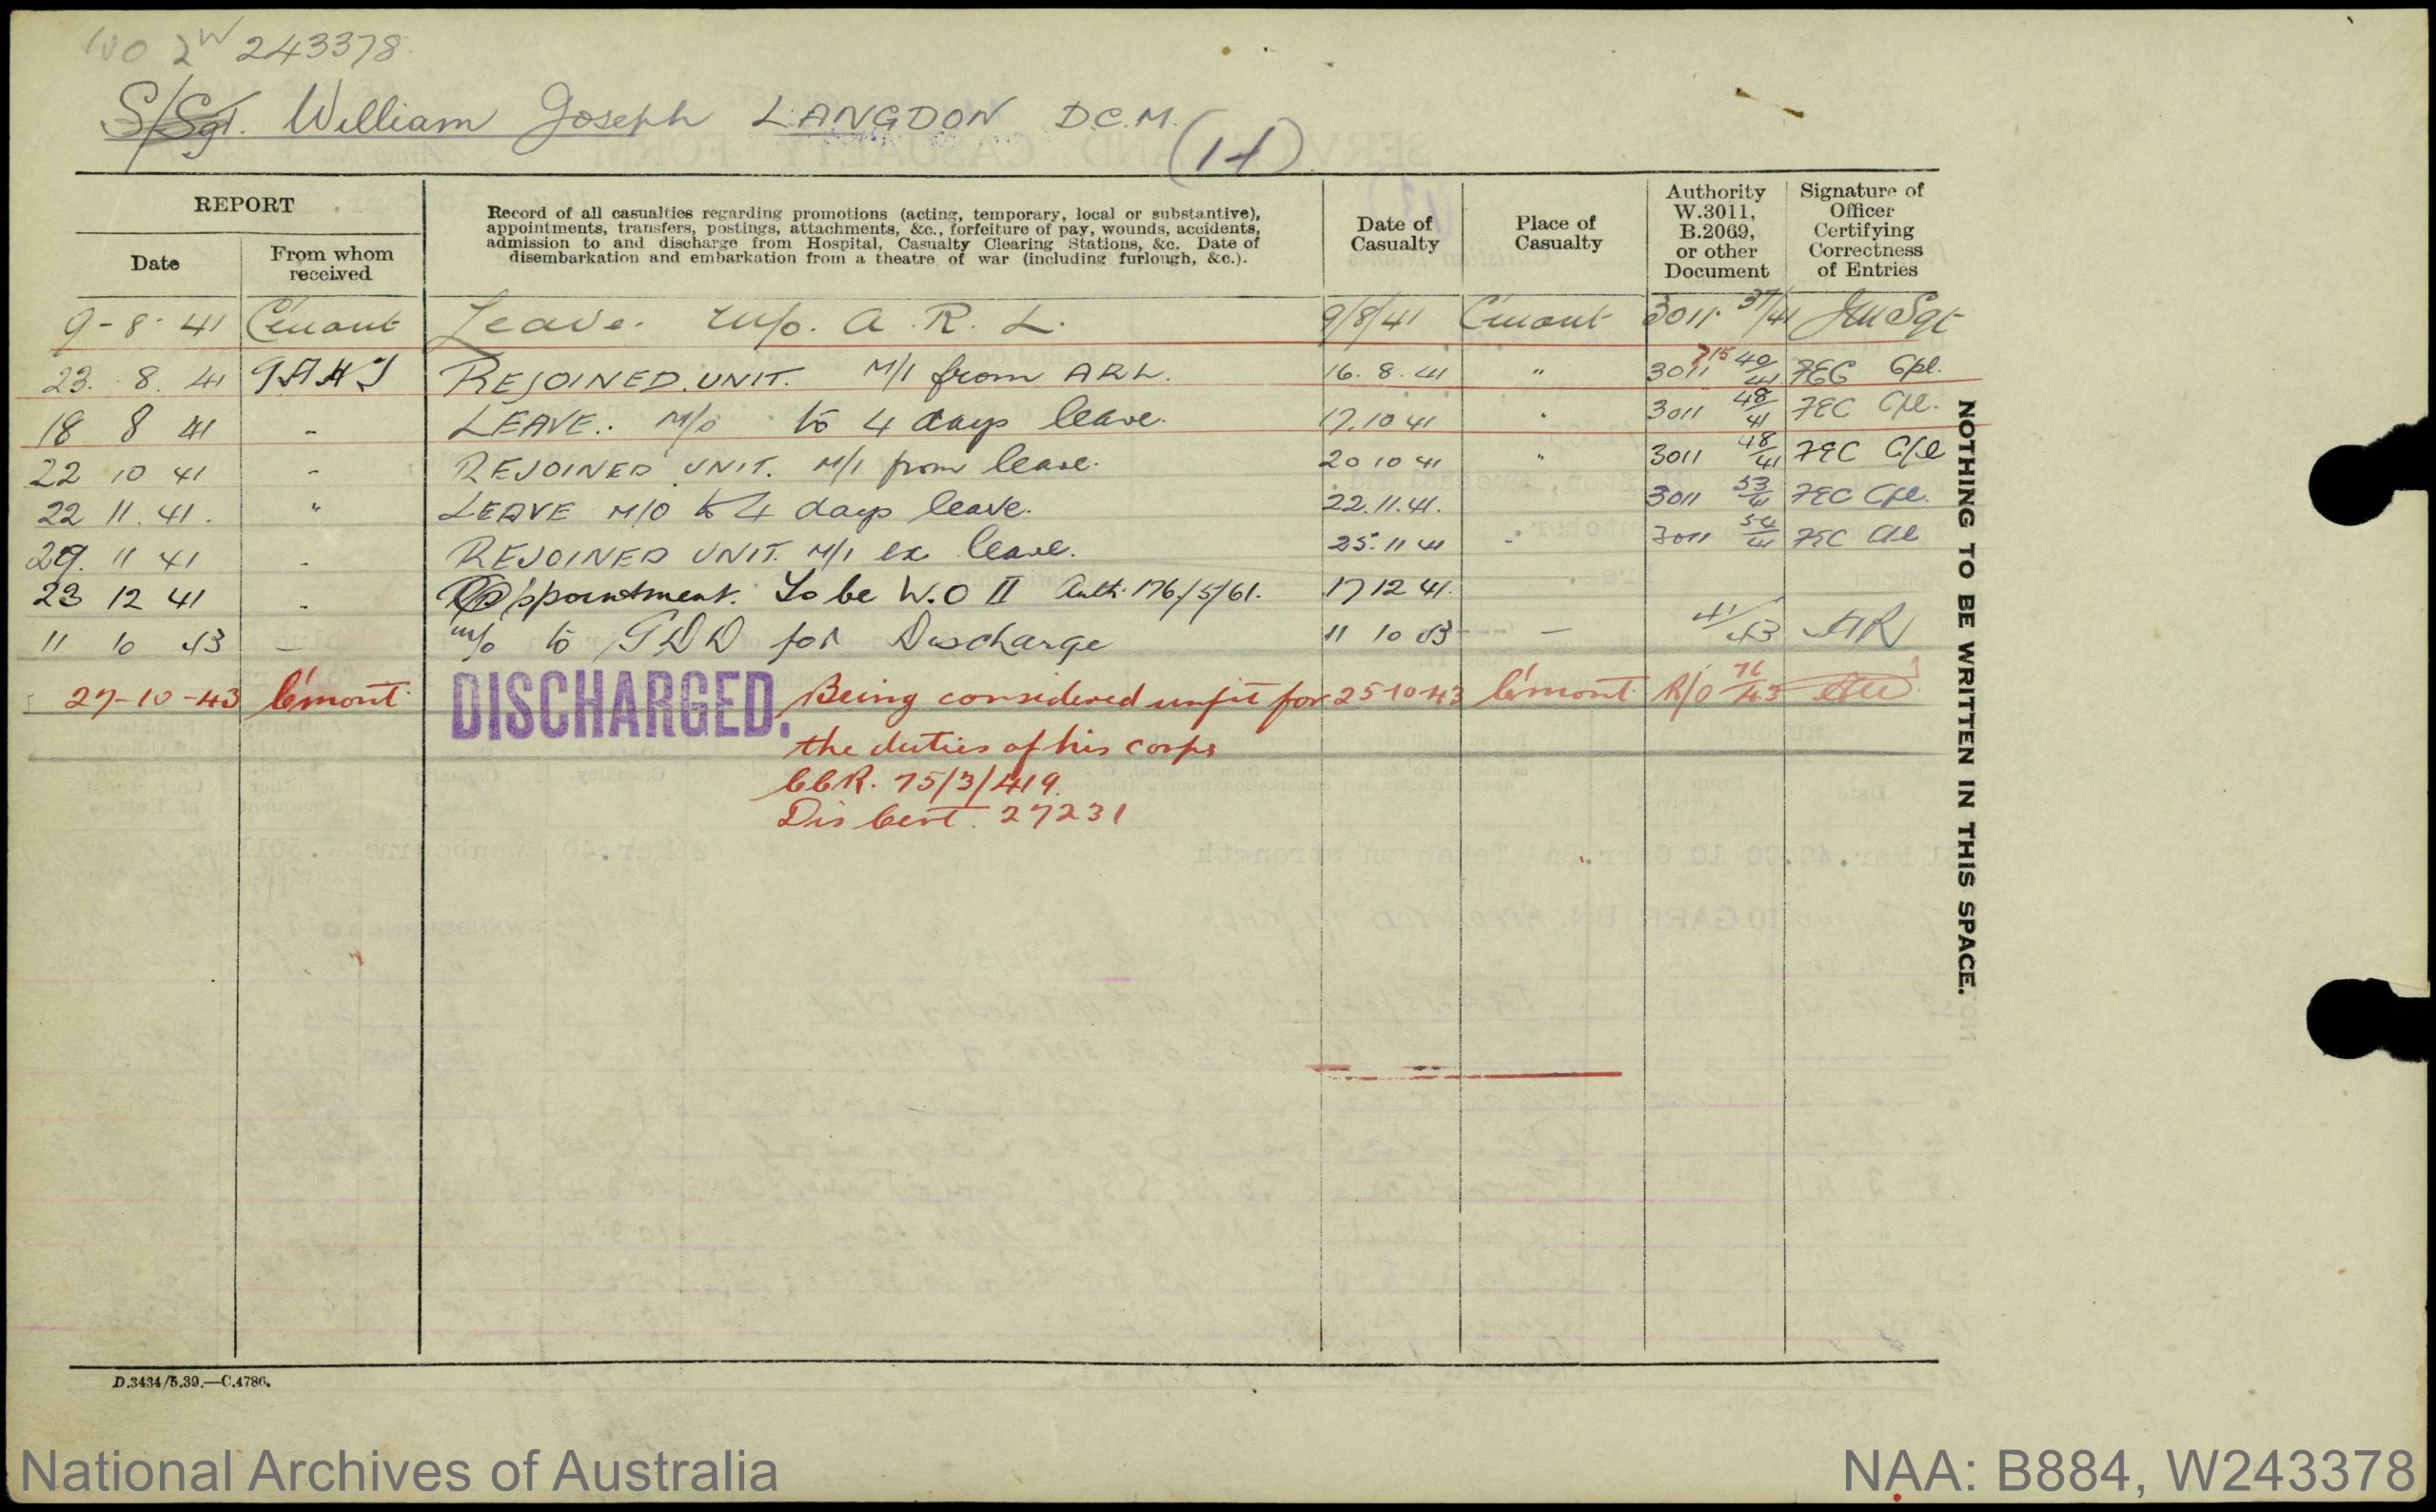 WO 2 W 243378
S/Sgt. William Joseph LANGDON D.C.M.
REPORT
Date
From whom received
Record of all casualties regarding promotions (acting, temporary, local or substantive), appointments, transfers, postings, attachments, &c., forfeiture of pay, wounds, accidents, admission to and discharge from Hospital, Casualty Clearing Stations, &c. Date of disembarkation and embarkation from a theatre of war (including furlough, &c.).
Date of Casualty
Place of Casualty
Authority W.3011, B.2069, or other Document
Signature of Officer Certifying Correctness of Entries
9-8-41 C'mont Leave. m/o. A.R.L. 9/8/41 C'mont 3011 37/41 Sgt
23.8.41 REJOINED UNIT. M/I from ARL. 16.8.41 " 3011 40/41 FEC Cpl.
18 8 41 - LEAVE. M/o to 4 days leave. 17.10 41 " 3011 48/41 FEC Cpl.
22 10 41 - REJOINED UNIT. M/I from leave. 20 10 41 " 3011 48/41 FEC Cpl
22 11.41. " LEAVE M/O to 4 days leave. 22.11.41. 3011 53/41 FEC Cpl.
29. 11 41 - REJOINED UNIT. M/I ex leave. 25.11 41 - 3011 54/41 FEC Cpl
23 12 41 - Appointment. To be W.O II Auth. 176/5/61. 17 12 41.
11 10 43 - m/o to GDD for Discharge 11 10 43 - 41/43
27-10-43 C'mont DISCHARGED. Being considered unfit for 25-10-43 C'mont R/O 76/43
the duties of his corps
CCR. 75/3/419.
Dis Cert. 27231
NOTHING TO BE WRITTEN IN THIS SPACE.
D.3434/5.39.—C.4786.
National Archives of Australia
NAA: B884, W243378